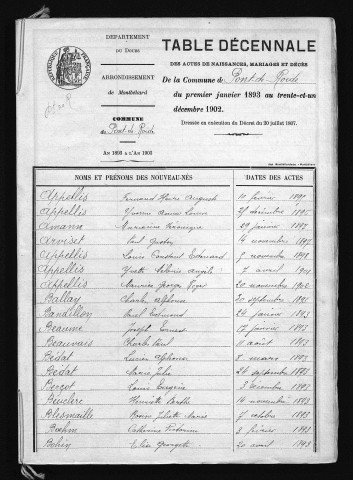 DÉPARTEMENT
du DOUBS
ARRONDISSEMENT
de Montbéliard
COMMUNE
de Pont-de-Roide
AN 1893 à L'AN 1902
TABLE DÉCENNALE
DES ACTES DE NAISSANCES, MARIAGES ET DÉCÈS
De la Commune de Pont-de-Roide
du premier janvier 1893 au trente-et-un
décembre 1902.
Dressée en exécution du Décret du 20 juillet 1807.
NOMS ET PRÉNOMS DES NOUVEAU-NÉS DATES DES ACTES
Appellis Fernand Auguste 10 février
Appellis Yvonne Louise 25 décembre 1895
Amann Marianne Véronique 29 janvier
Arviset Paul Gustave 4 novembre
Appellis Louis Constant Edouard 9 novembre
Appellis Yvette Angèle 7 avril
Appellis Maurice George 20 novembre 1902
Ballay Charles Alphonse 20 septembre
Bandillon Paul Edmond 24 janvier 1893
Beaume Joseph Ernest 17 janvier 1893
Beauvais Charles Paul août 1893
Bédat Lucien Alphonse 8 mars 1893
Bédat Marie Julie 24 septembre 1893
Berçot Louis Eugène 3 décembre 1893
Beucler Henriette Marthe 14 novembre 1893
Blesmaille Juliette Marie 7 octobre 1893
Boehm Catherine Victorine 3 février 1893
Bohin Elise Georgette 20 avril 1893